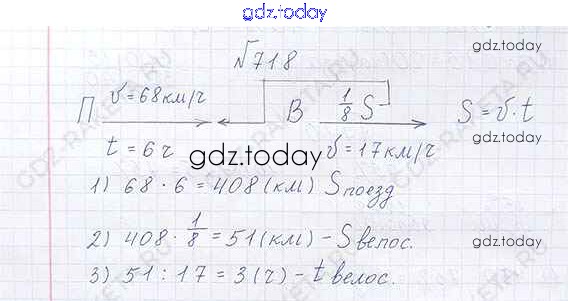 gdz.today
№718
gdz.today
П v = 68км/ч В 1/8 S S = v · t
t = 6 ч v = 17км/ч
gdz.today
1) 68 · 6 = 408 (км) Sпоезд
2) 408 · 1/8 = 51 (км) – Sвелос.
gdz.today
3) 51 : 17 = 3 (ч) – t велос.
gdz.today